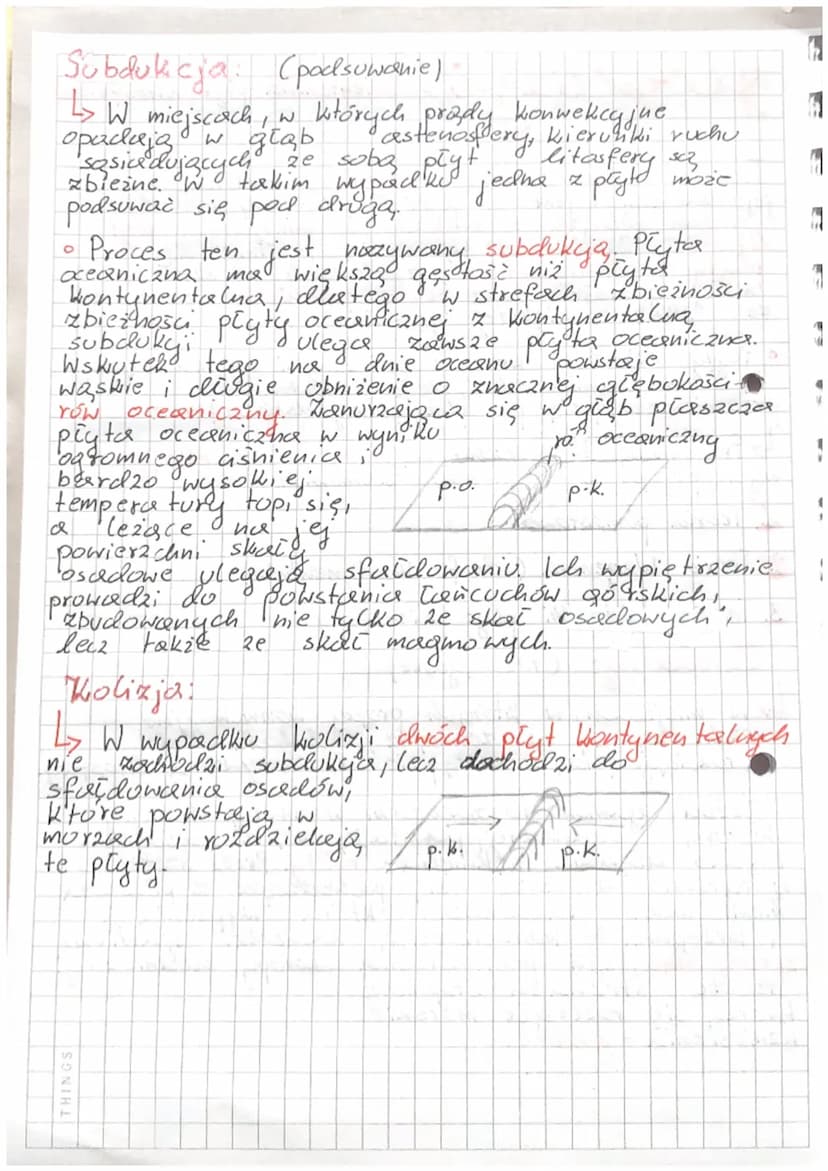 Subdukcja: (podsuwanie)
↳ W miejscach, w których prądy konwekcyjne
opadają w głąb astenosfery, kierunki ruchu
sąsiadujących ze sobą płyt litosfery są
zbieżne. W takim wypadku jedna z płyt może
podsuwać się pod drugą.
• Proces ten jest nazywany subdukcją. Płyta
oceaniczna ma większą gęstość niż płyta
kontynentalna, dlatego w strefach zbieżności
zbieżności płyty oceanicznej z kontynentalną
subdukcji ulega zawsze płyta oceaniczna.
Wskutek tego na dnie oceanu powstaje
wąskie i długie obniżenie o znacznej głębokości
rów oceaniczny. Zanurzająca się w głąb płaszcza
płyta oceaniczna w wyniku
rów oceaniczny
ogromnego ciśnienia i
bardzo wysokiej
p.o. p.k.
temperatury topi się,
a leżące na jej
powierzchni skały
osadowe ulegają sfałdowaniu. Ich wypiętrzenie
prowadzi do powstania łańcuchów górskich,
zbudowanych nie tylko ze skał osadowych,
lecz także ze skał magmowych.
Kolizja:
↳ W wypadku kolizji dwóch płyt kontynentalnych
nie zachodzi subdukcja, lecz dochodzi do
sfałdowania osadów,
które powstają w
morzach i rozdzielają
p.k. p.k.
te płyty.
THINGS